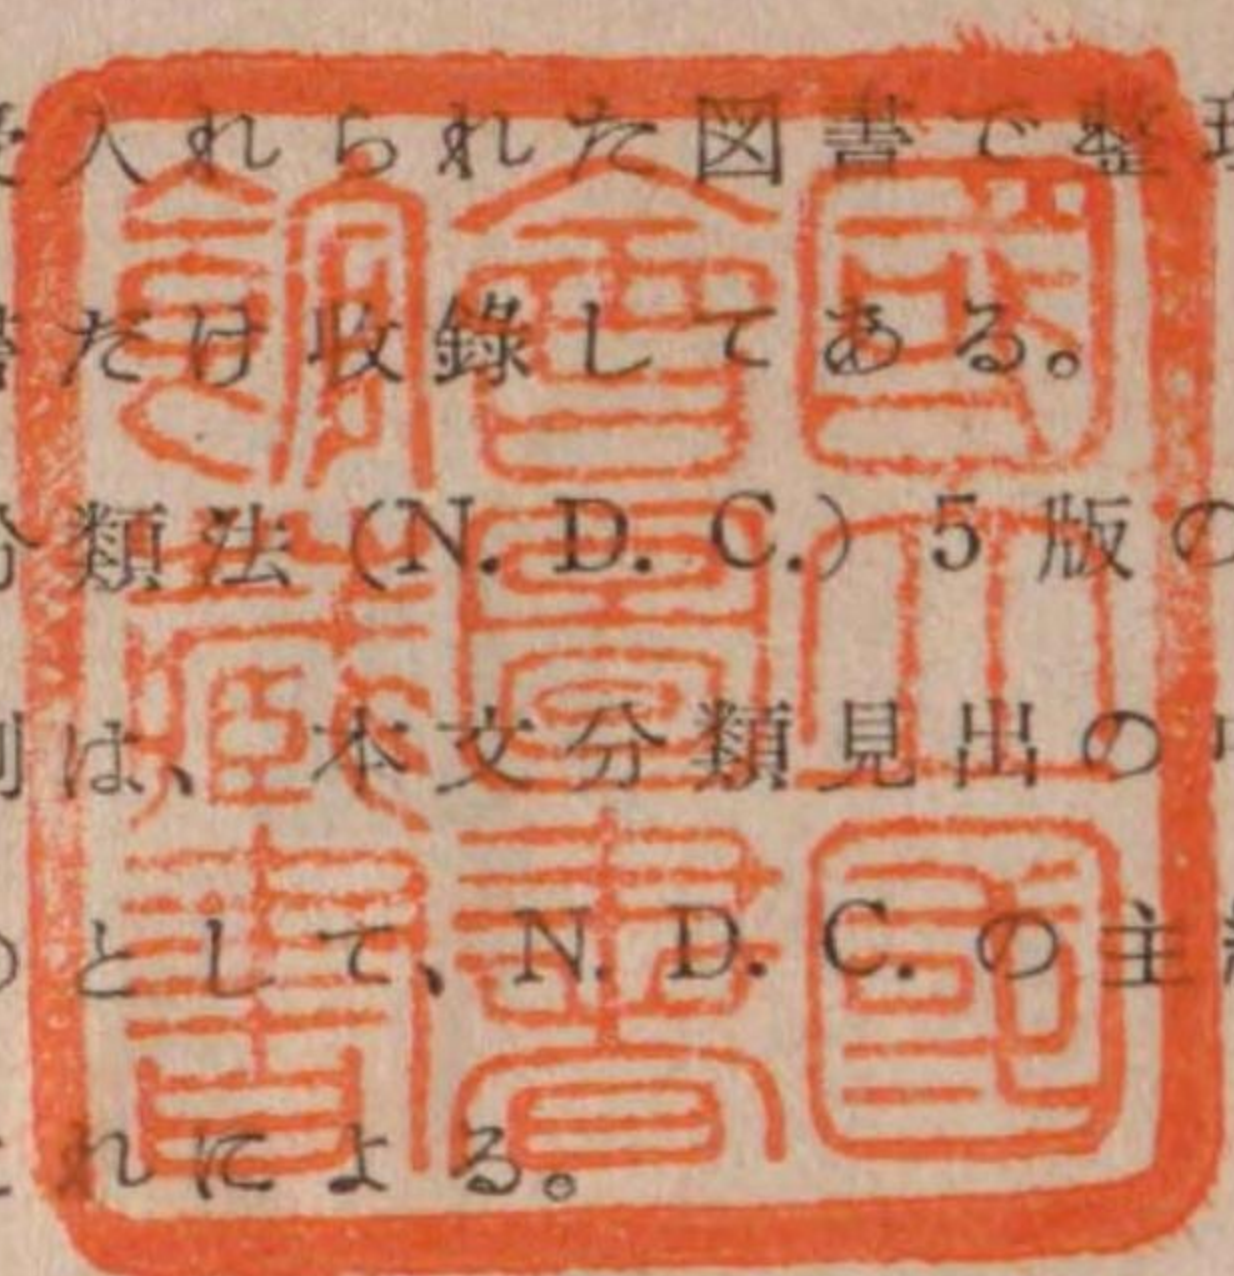 入れられた図書で整
だけ收錄してある。
分類法 (N. D. C.) 5 版の
は、本文分類見出の
のとして、N. D. C. の主
れによる。
國立國
會圖書
館藏書